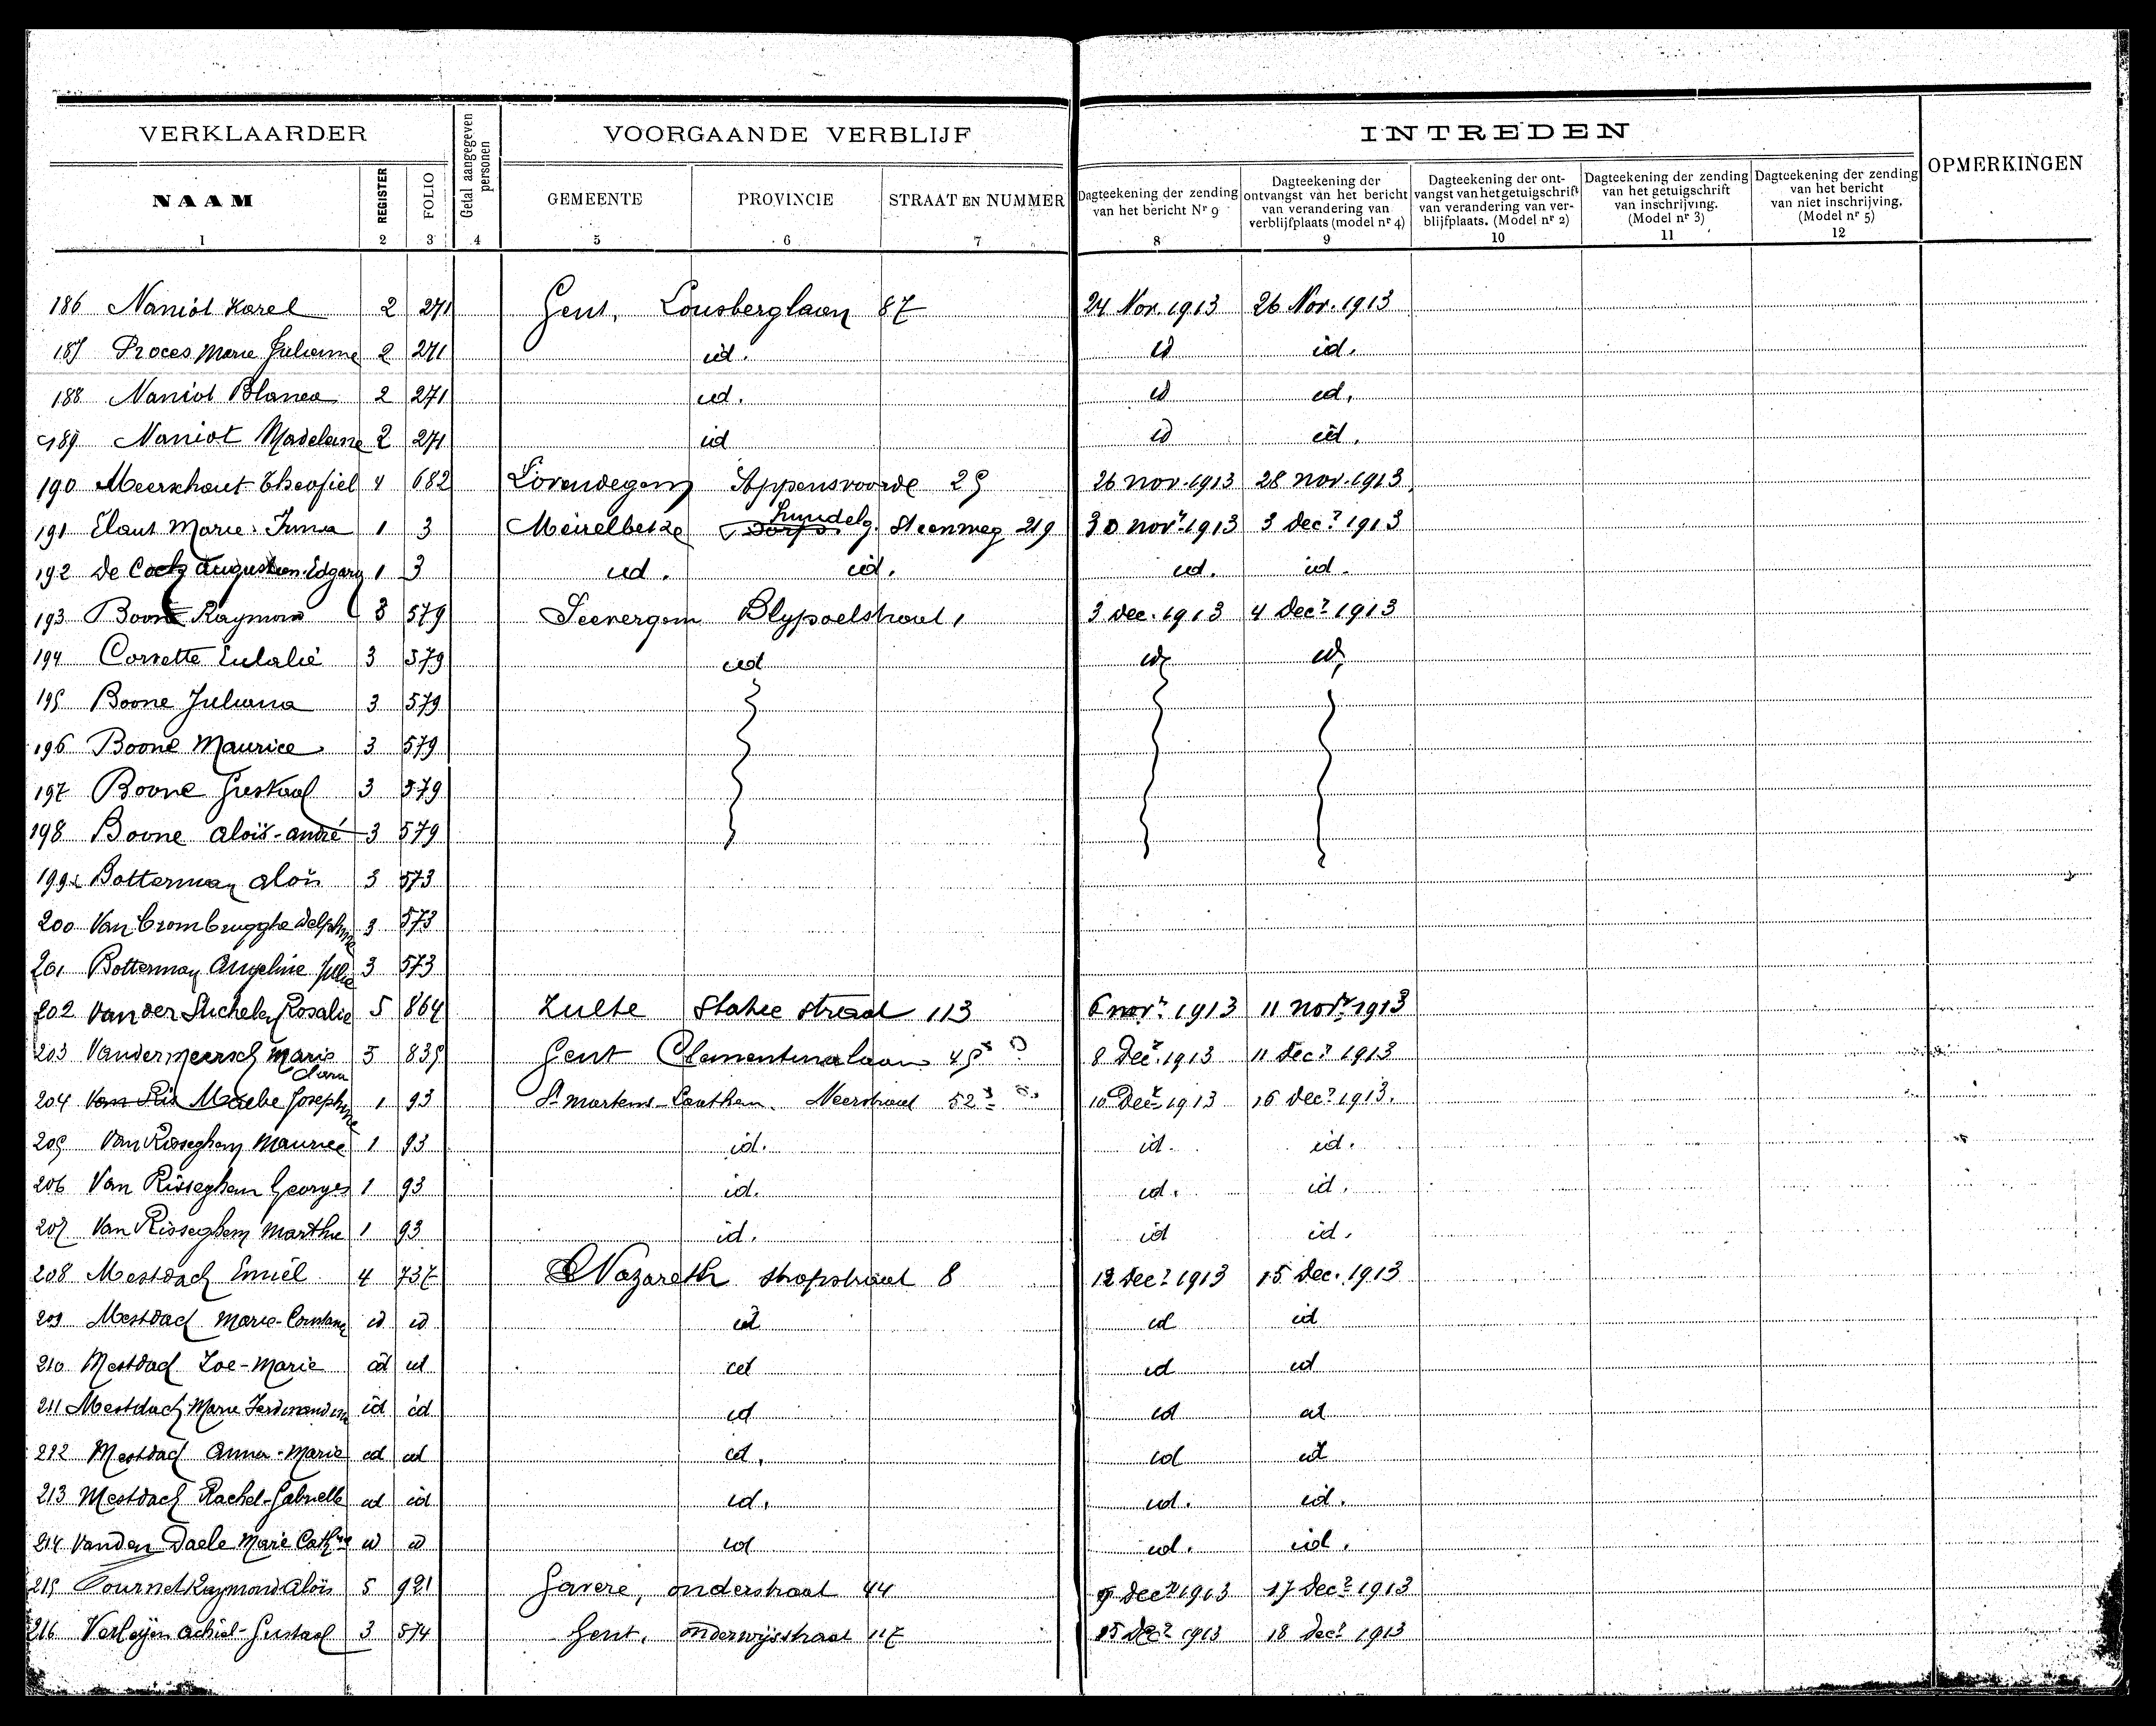 VERKLAARDER
Getal aangegeven personen
VOORGAANDE VERBLIJF
INTREDEN
OPMERKINGEN
NAAM
REGISTER
FOLIO
GEMEENTE
PROVINCIE
STRAAT EN NUMMER
Dagteekening der zending van het bericht Nr 9
Dagteekening der ontvangst van het bericht van verandering van verblijfplaats (model nr 4)
Dagteekening der ontvangst van het getuigschrift van verandering van verblijfplaats. (Model nr 2)
Dagteekening der zending van het getuigschrift van inschrijving. (Model nr 3)
Dagteekening der zending van het bericht van niet inschrijving. (Model nr 5)
1 2 3 4 5 6 7 8 9 10 11 12
186 Naniot Karel 2 271 Gent, Lousberglaan 87 24 Nov. 1913 26 Nov. 1913
187 Proces Marie Julienne 2 271 id. id id.
188 Naniot Blanca 2 271 id. id id.
189 Naniot Madeleine 2 271 id id id.
190 Meerschaut Theofiel 4 682 Lovendegem Appensvoorde 25 26 nov. 1913 28 nov. 1913
191 Elaut Marie Irma 1 3 Meirelbeke Steenweg 219 30 novr 1913 3 Decr 1913
192 De Cock Augustien Edgard 1 3 id. id. id. id.
193 Boone Raymond 3 579 Seevergem Blypoelstraat 1 3 Dec. 1913 4 Decr 1913
194 Corsette Eulalie 3 579 id id id
195 Boone Juliana 3 579
196 Boone Maurice 3 579
197 Boone Gustaaf 3 579
198 Boone Aloïs-André 3 579
199 Botterman Aloïs 3 573
200 Van Crombrugghe Delphine 3 573
201 Botterman Angeline Julia 3 573
202 Van der Stichelen Rosalie 5 864 Zulte Statie straat 113 6 novr 1913 11 novr 1913
203 Vandermeersch Marie Clara 5 835 Gent Clementinalaan 45 8 Decr 1913 11 Decr 1913
204 Van Ris Maebe Josephine 1 93 St martens-Laethem Neerstraat 52 10 Decr 1913 16 Decr 1913.
205 Van Risseghem Maurice 1 93 id. id. id.
206 Van Risseghem Georges 1 93 id. id. id.
207 Van Risseghem Marthe 1 93 id. id id.
208 Mestdach Emiel 4 737 Nazareth Stropstraat 8 12 Decr 1913 15 Dec. 1913
209 Mestdach Marie- id id id id id
210 Mestdach Zoe-Marie id id id id id
211 Mestdach Marie Ferdinandina id id id id id
212 Mestdach Anna-Marie id id id. id id
213 Mestdach Rachel-Gabrielle id id id. id. id.
214 Vanden Daele Marie Cathna id id id id. id.
215 Tournel Raymond Aloïs 5 921 Gavere, onderstraat 44 9 Decr 1913 17 Decr 1913
216 Verleyen Achiel-Gustaaf 3 574 Gent, onderwijsstraat 117 15 Decr 1913 18 Decr 1913